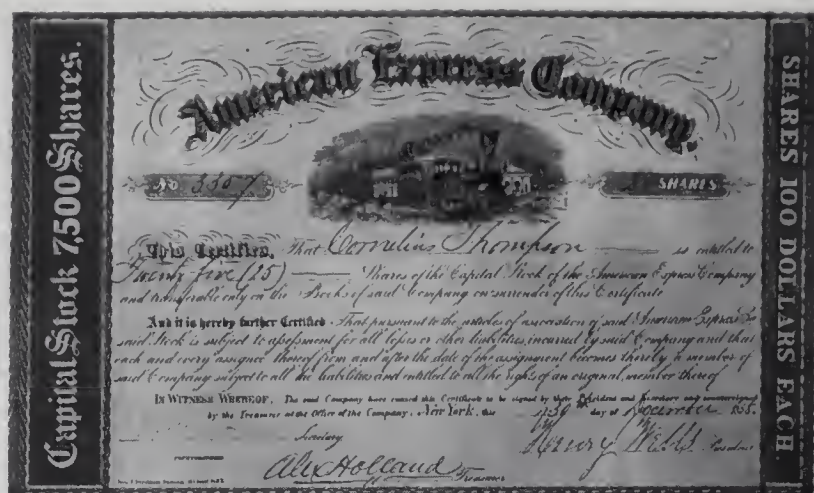 Capital Stock 7,500 Shares.
American Express Company.
No 3307
SHARES
This Certifies, That Cornelius Thompson is entitled to
Twenty five (25) Shares of the Capital Stock of the American Express Company
and transferable only on the Books of said Company on surrender of this Certificate
And it is hereby further Certified That pursuant to the articles of association of said American Express Co
said Stock is subject to assessment for all losses or other liabilities, incurred by said Company and that
each and every assignee thereof from and after the date of the assignment becomes thereby a member of
said Company subject to all the liabilities and entitled to all the rights of an original member thereof
IN WITNESS WHEREOF, The said Company have caused this Certificate to be signed by their President and Secretary and countersigned
by the Treasurer at the Office of the Company, New York, this day of December 185
Secretary
Henry Wells President
Alex Holland Treasurer
SHARES 100 DOLLARS EACH.